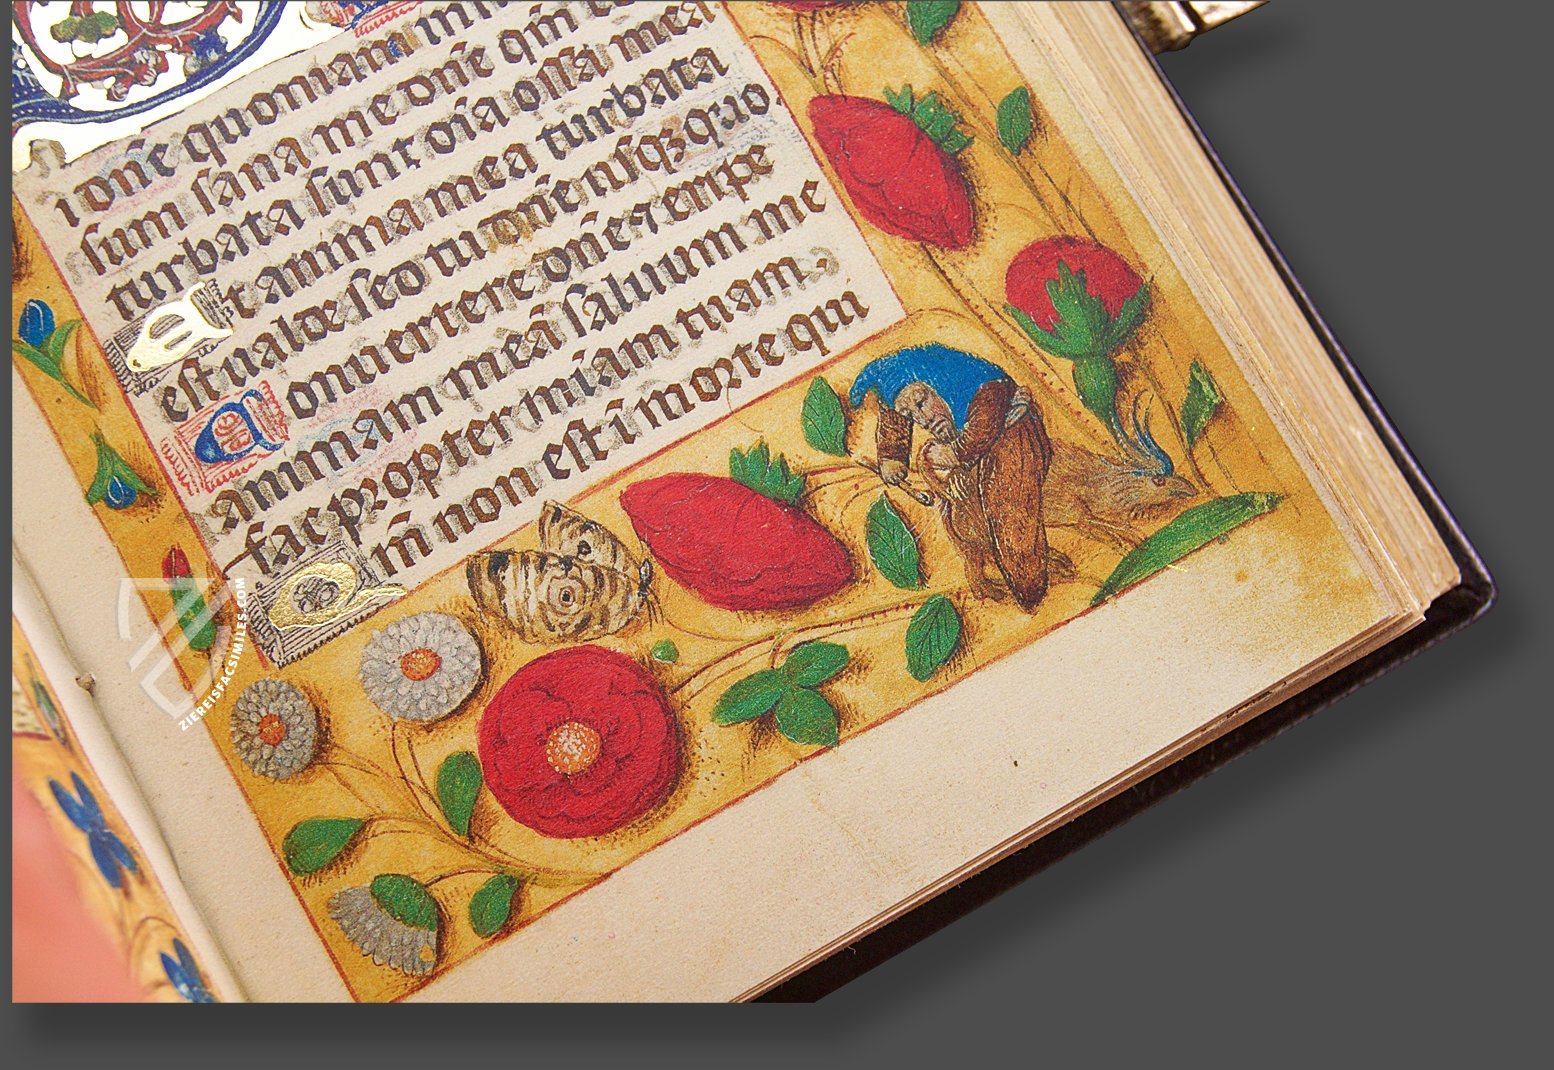 i dn̄e quoniam in
sum sana me dn̄e qm̄ co
turbata sunt oīa ossa mea
Et anima mea turbata
est ualde sed tu dn̄e usqꝫ quo.
Conuertere dn̄e ⁊ eripe
animam meā saluum me
fac propter miam tuam.
Qm̄ non est ī morte qui
ZIEREISFACSIMILES.COM